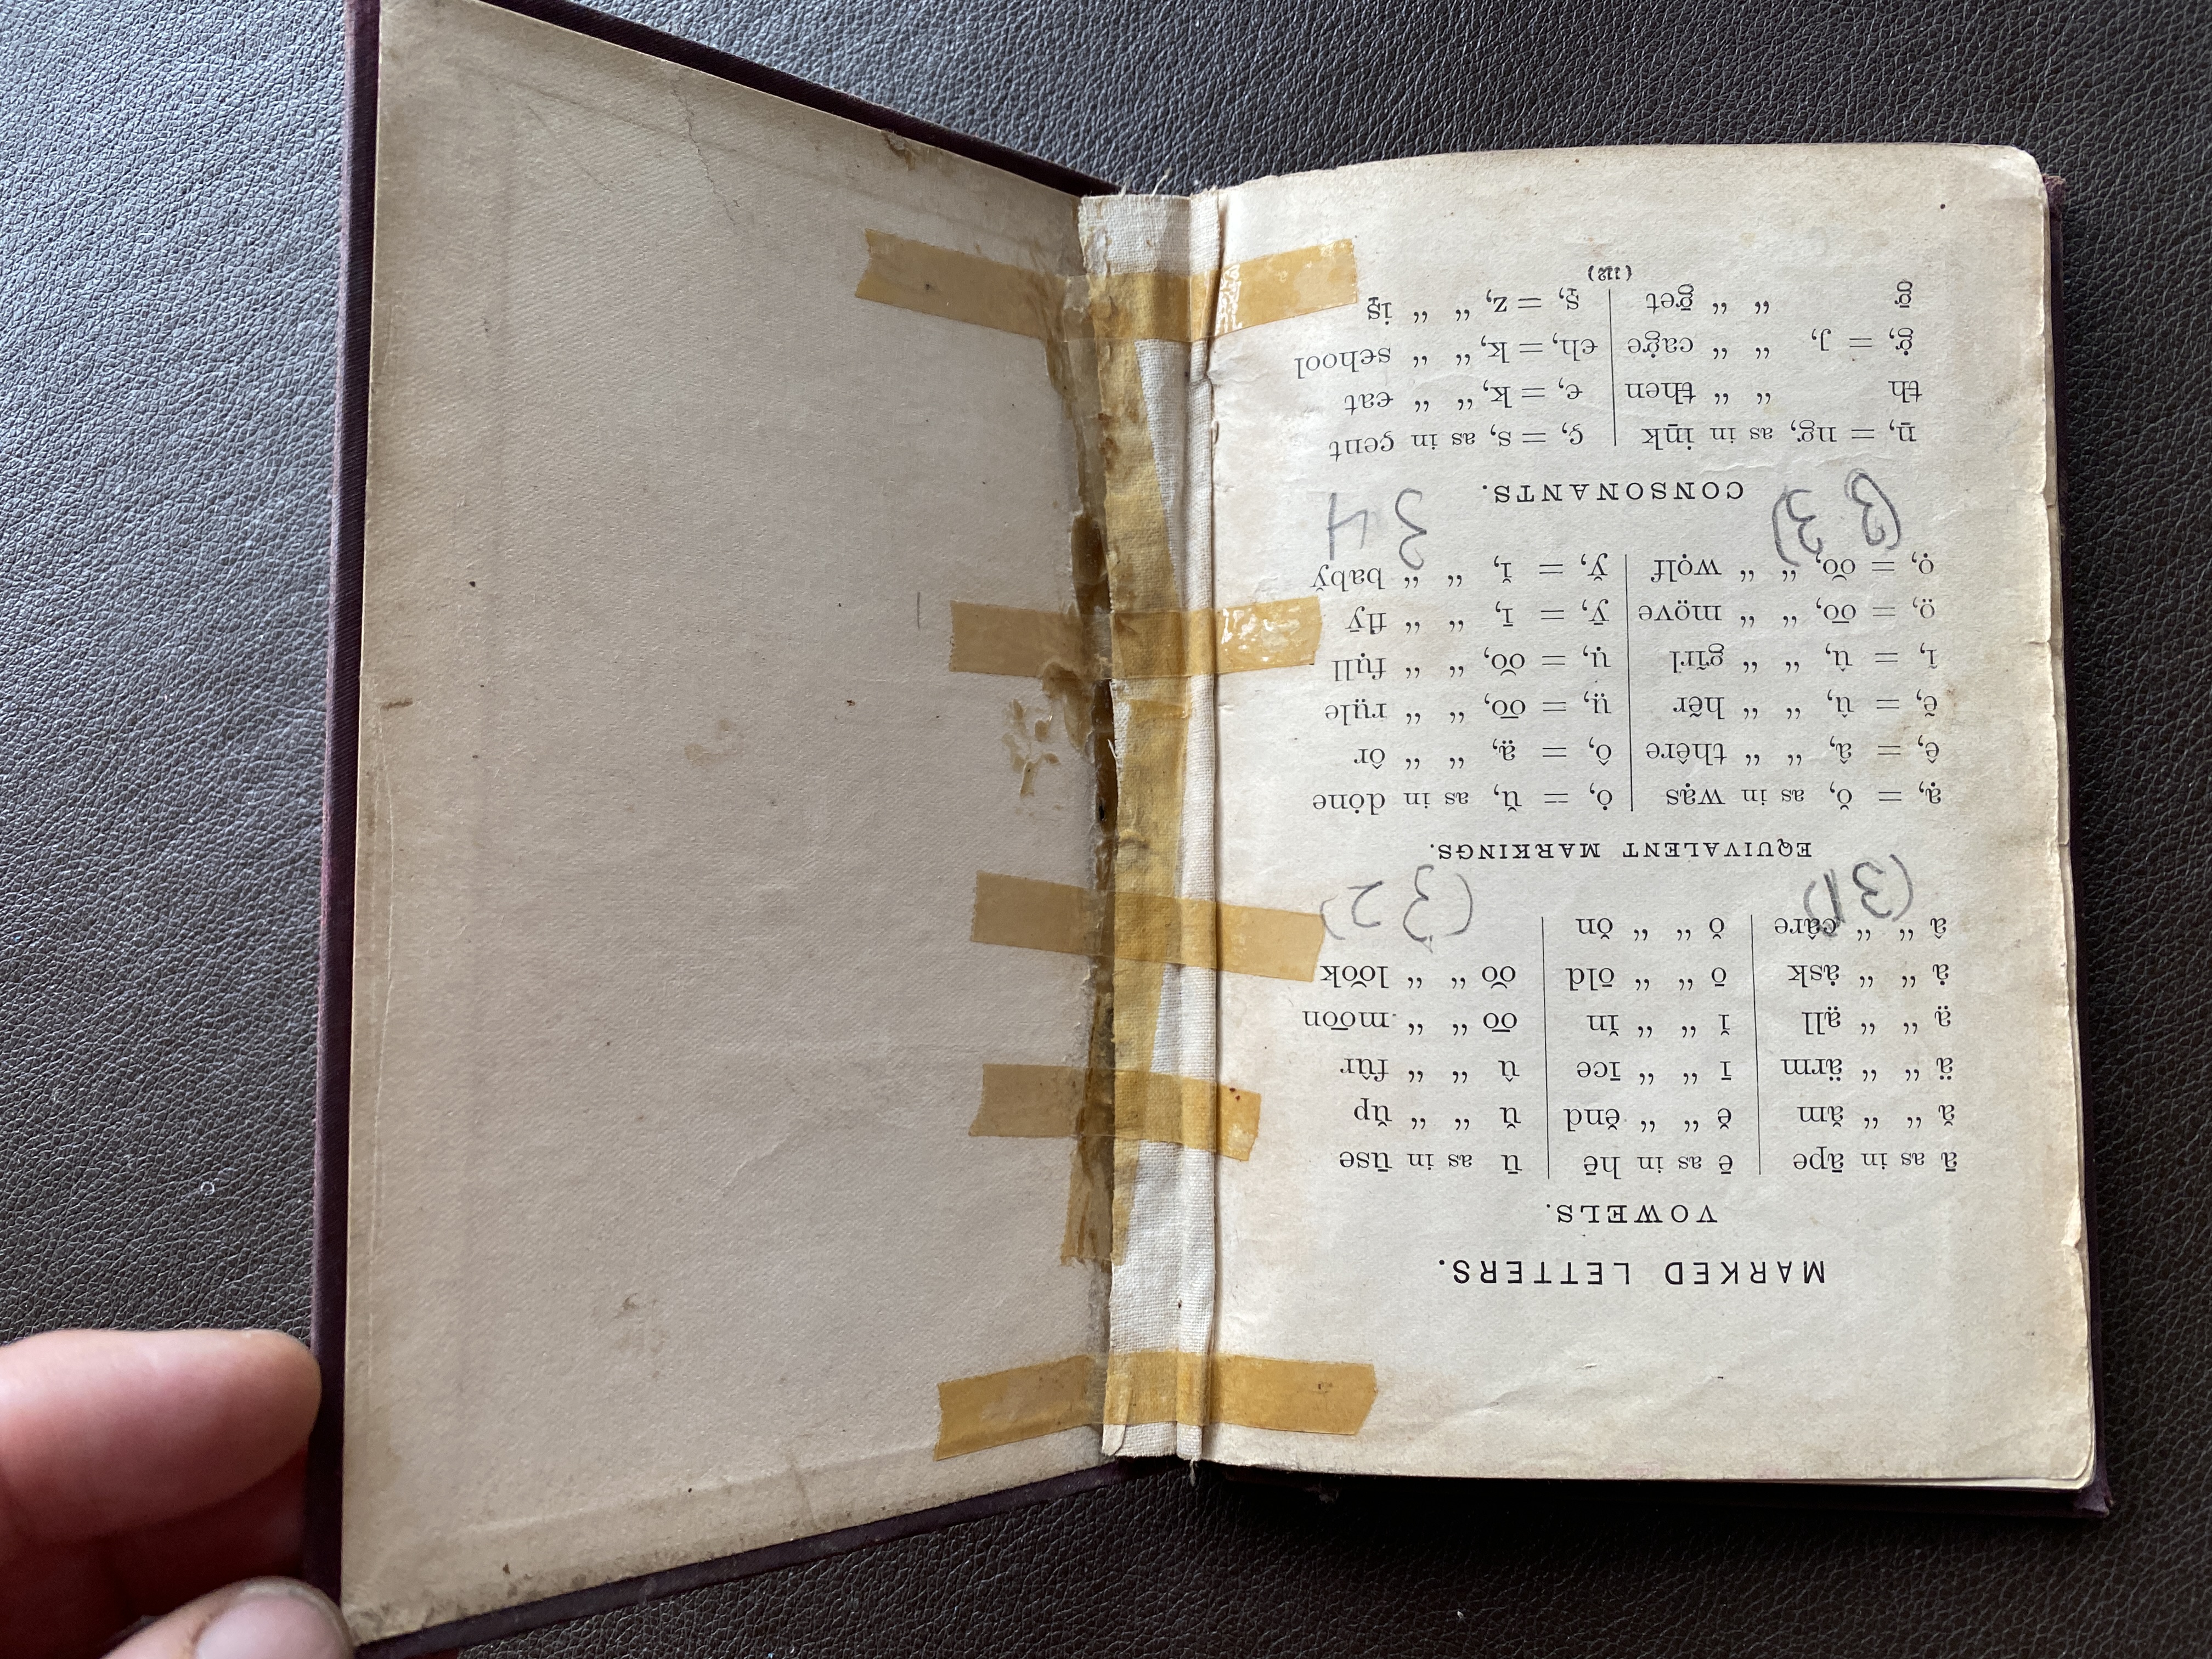 MARKED LETTERS.
VOWELS.
ā as in āpe ē as in hē ū as in ūse
ă “ “ ăm ĕ “ “ ĕnd ŭ “ “ ŭp
ä “ “ ärm ī “ “ īce û “ “ fûr
a̤ “ “ a̤ll ĭ “ “ ĭn o͞o “ “ mo͞on
ȧ “ “ ȧsk ō “ “ ōld o͝o “ “ lo͝ok
â “ “ câre ŏ “ “ ŏn
(31) (32)
EQUIVALENT MARKINGS.
ạ, = ŏ, as in wạs ȯ, = ŭ, as in dȯne
ê, = â, “ “ thêre ô, = a̤, “ “ ôr
ẽ, = û, “ “ hẽr ṳ, = o͞o, “ “ rṳle
ĩ, = û, “ “ gĩrl ụ, = o͝o, “ “ fụll
o̤, = o͞o, “ “ mo̤ve ȳ, = ī, “ “ flȳ
ọ, = o͝o, “ “ wọlf y̆, = ĭ, “ “ baby̆
(33) 34
CONSONANTS.
ṉ, = ng, as in iṉk ç, = s, as in çent
th “ “ then c, = k, “ “ cat
ġ, = j, “ “ caġe ch, = k, “ “ school
ḡ “ “ ḡet s̱, = z, “ “ is̱
(112)